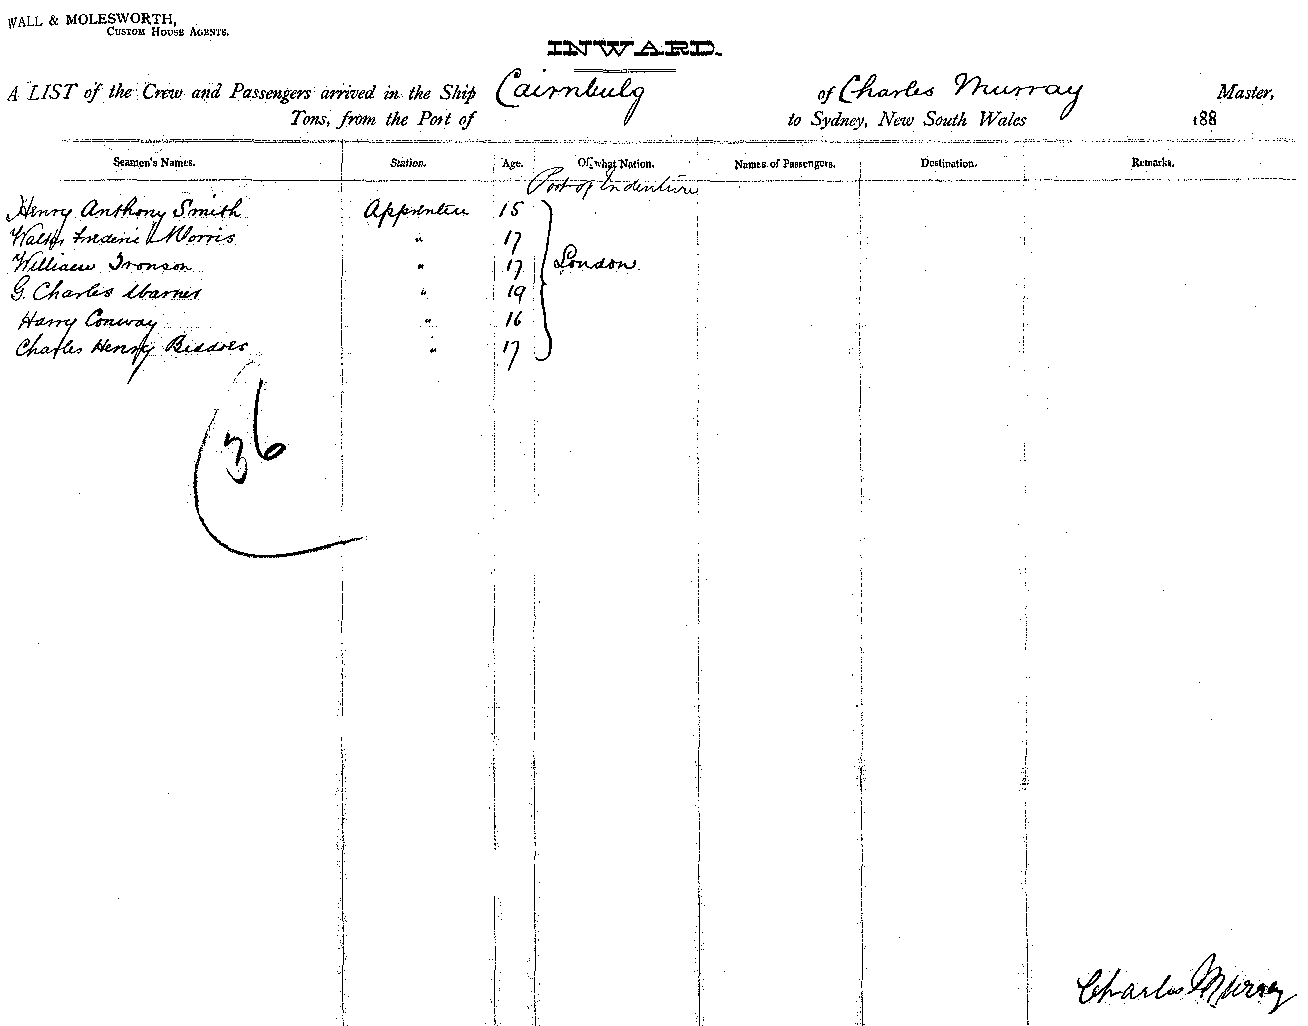 WALL & MOLESWORTH,
CUSTOM HOUSE AGENTS.
INWARD.
A LIST of the Crew and Passengers arrived in the Ship Cairnbulg of Charles Murray Master,
Tons, from the Port of to Sydney, New South Wales 188
Seamen's Names. Station. Age. Of what Nation. Names of Passengers. Destination. Remarks.
Port of Indenture
Henry Anthony Smith Apprentice 15
Walter Frederic Morris " 17
William Ironson " 17 London
G. Charles Warner " 19
Harry Conway " 16
Charles Henry " 17
36
Charles Murray